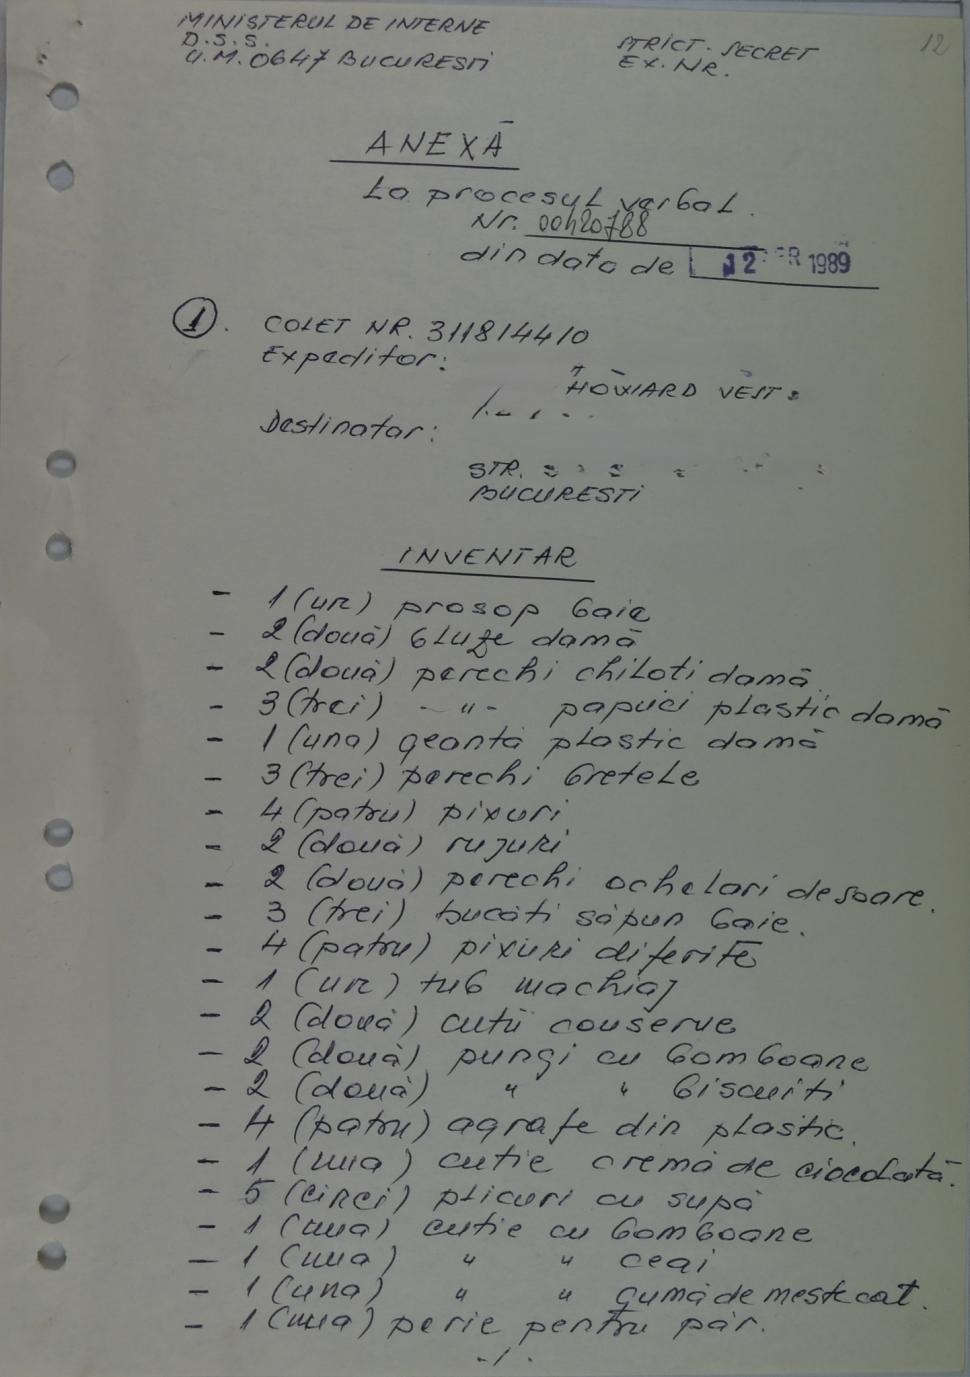 MINISTERUL DE INTERNE
D.S.S.
U.M. 0647 BUCURESTI
STRICT. SECRET
EX. NR.
12
ANEXĂ
La procesul verbal.
Nr. 00420788
din data de 12 1989
1. COLET NR. 311814410
Expeditor:
HOWARD VEST
Destinatar:
STR.
BUCURESTI
INVENTAR
- 1 (un) prosop baie
- 2 (două) bluze damă
- 2 (două) perechi chiloti damă
- 3 (trei) -"- papuci plastic damă
- 1 (una) geantă plastic damă
- 3 (trei) perechi bretele
- 4 (patru) pixuri
- 2 (două) rujuri
- 2 (două) perechi ochelari de soare.
- 3 (trei) bucăti săpun baie.
- 4 (patru) pixuri diferite
- 1 (un) tub machiaj
- 2 (două) cutii conserve
- 2 (două) pungi cu bomboane
- 2 (două) " " biscuiti
- 4 (patru) agrafe din plastic.
- 1 (una) cutie cremă de ciocolată.
- 5 (cinci) plicuri cu supă
- 1 (una) cutie cu bomboane
- 1 (una) " " ceai
- 1 (una) " " gumă de mestecat.
- 1 (una) perie pentru păr.
-/.